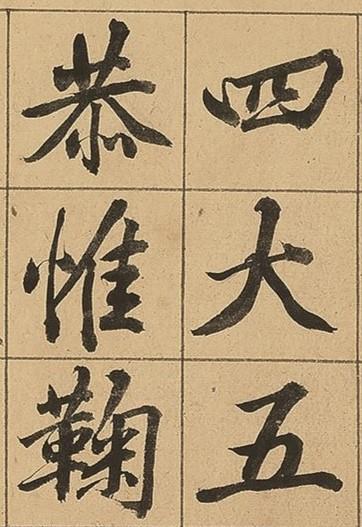 四大五
恭惟鞠